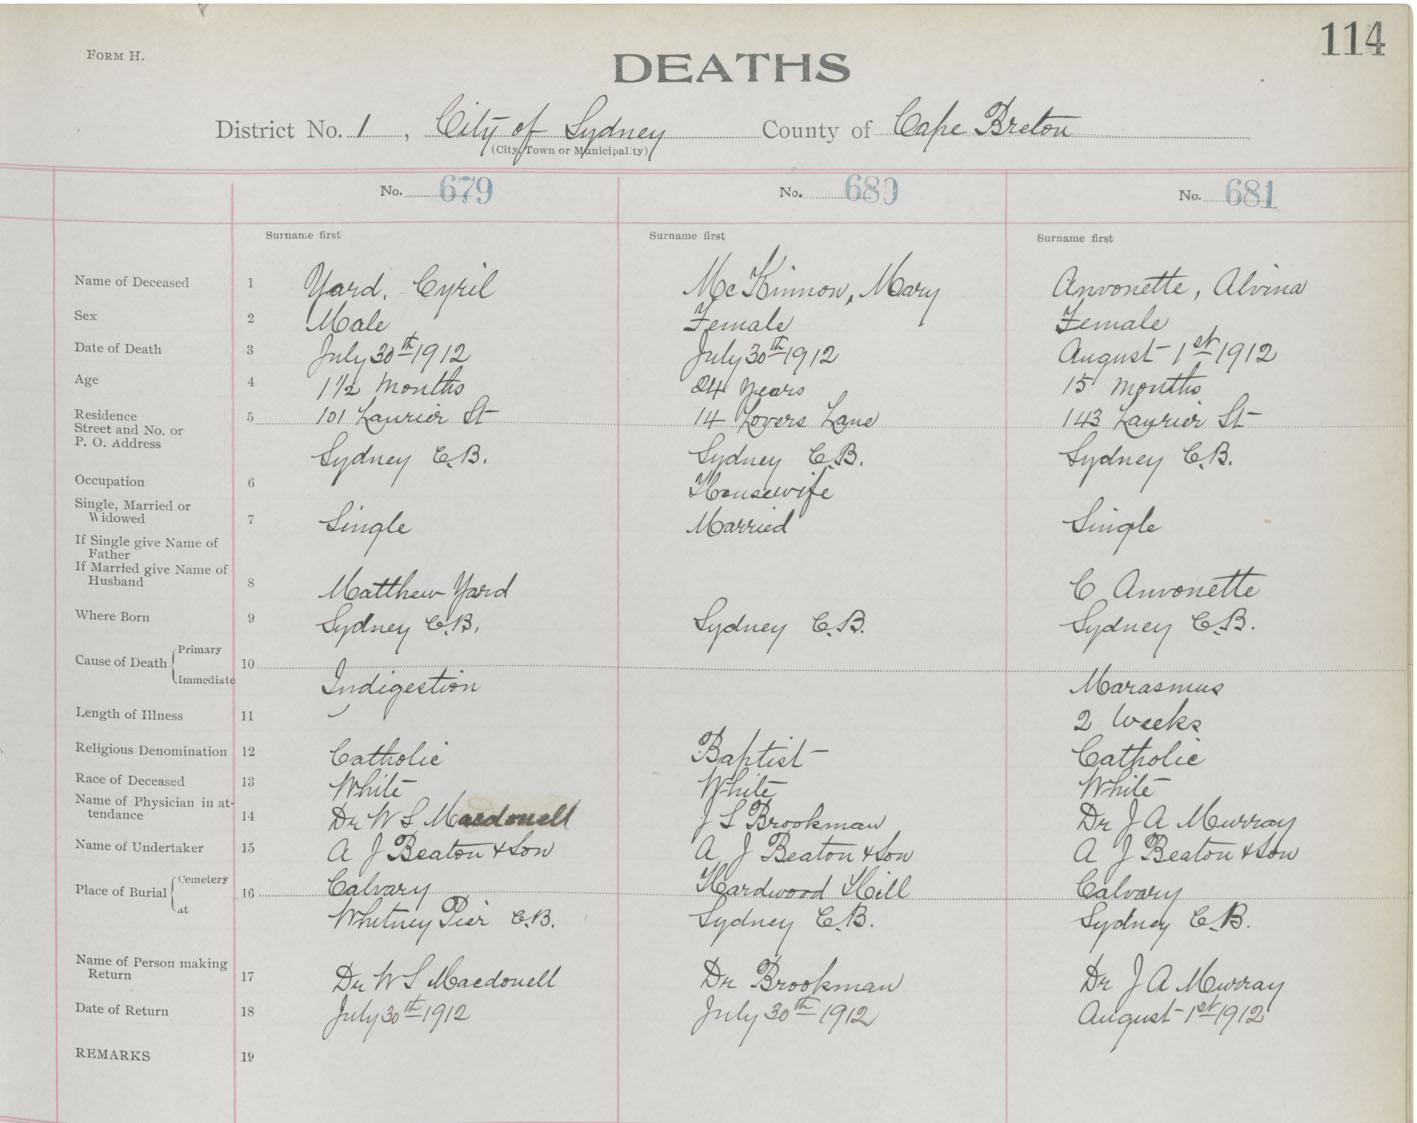 114
FORM H.
DEATHS
District No. 1, City of Sydney County of Cape Breton
(City, Town or Municipality)
No. 679 No. 680 No. 681
Surname first Surname first Surname first
Name of Deceased 1 Yard, Cyril McKinnon, Mary Anvonette, Alvina
Sex 2 Male Female Female
Date of Death 3 July 30th 1912 July 30th 1912 August 1st 1912
Age 4 1 1/2 Months 24 Years 15 Months
Residence
Street and No. or
P. O. Address 5 101 Laurier St 14 Lovers Lane 143 Laurier St
Sydney C.B. Sydney C.B. Sydney C.B.
Occupation 6 Housewife
Single, Married or
Widowed 7 Single Married Single
If Single give Name of
Father
If Married give Name of
Husband 8 Matthew Yard C Anvonette
Where Born 9 Sydney C.B. Sydney C.B. Sydney C.B.
Cause of Death Primary 10
Immediate Indigestion Marasmus
Length of Illness 11 2 Weeks
Religious Denomination 12 Catholic Baptist Catholic
Race of Deceased 13 White White White
Name of Physician in at-
tendance 14 Dr W S Macdonell J S Brookman Dr J A Murray
Name of Undertaker 15 A J Beaton & Son A J Beaton & Son A J Beaton & Son
Place of Burial Cemetery 16 Calvary Hardwood Hill Calvary
at Whitney Pier C.B. Sydney C.B. Sydney C.B.
Name of Person making
Return 17 Dr W S Macdonell Dr Brookman Dr J A Murray
Date of Return 18 July 30th 1912 July 30th 1912 August 1st 1912
REMARKS 19